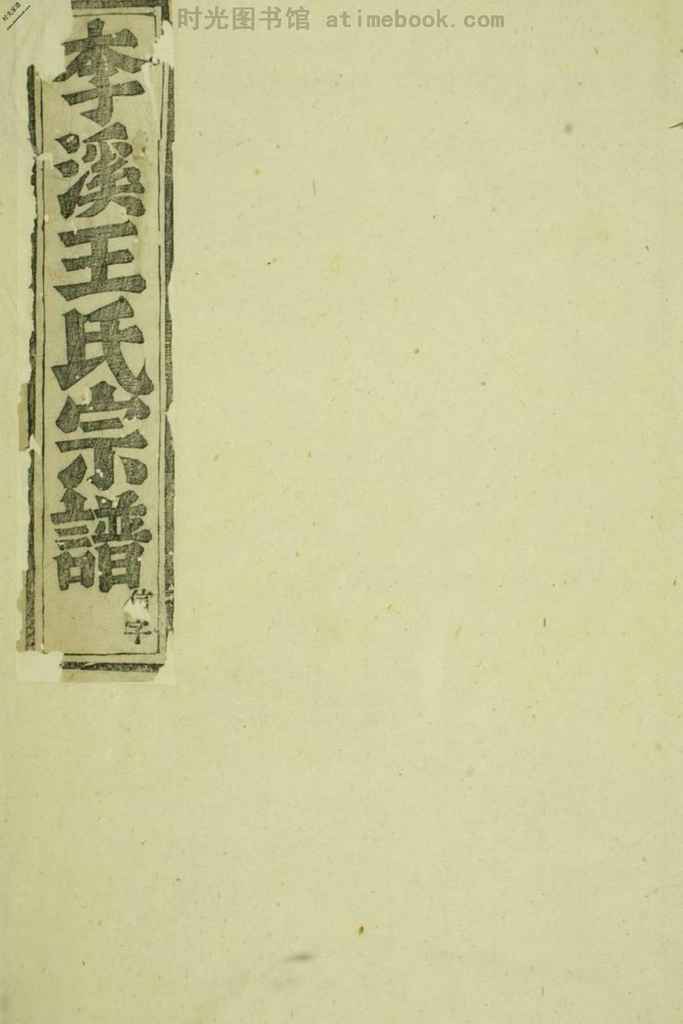 时光图书馆 atimebook.com
李溪王氏宗譜
字